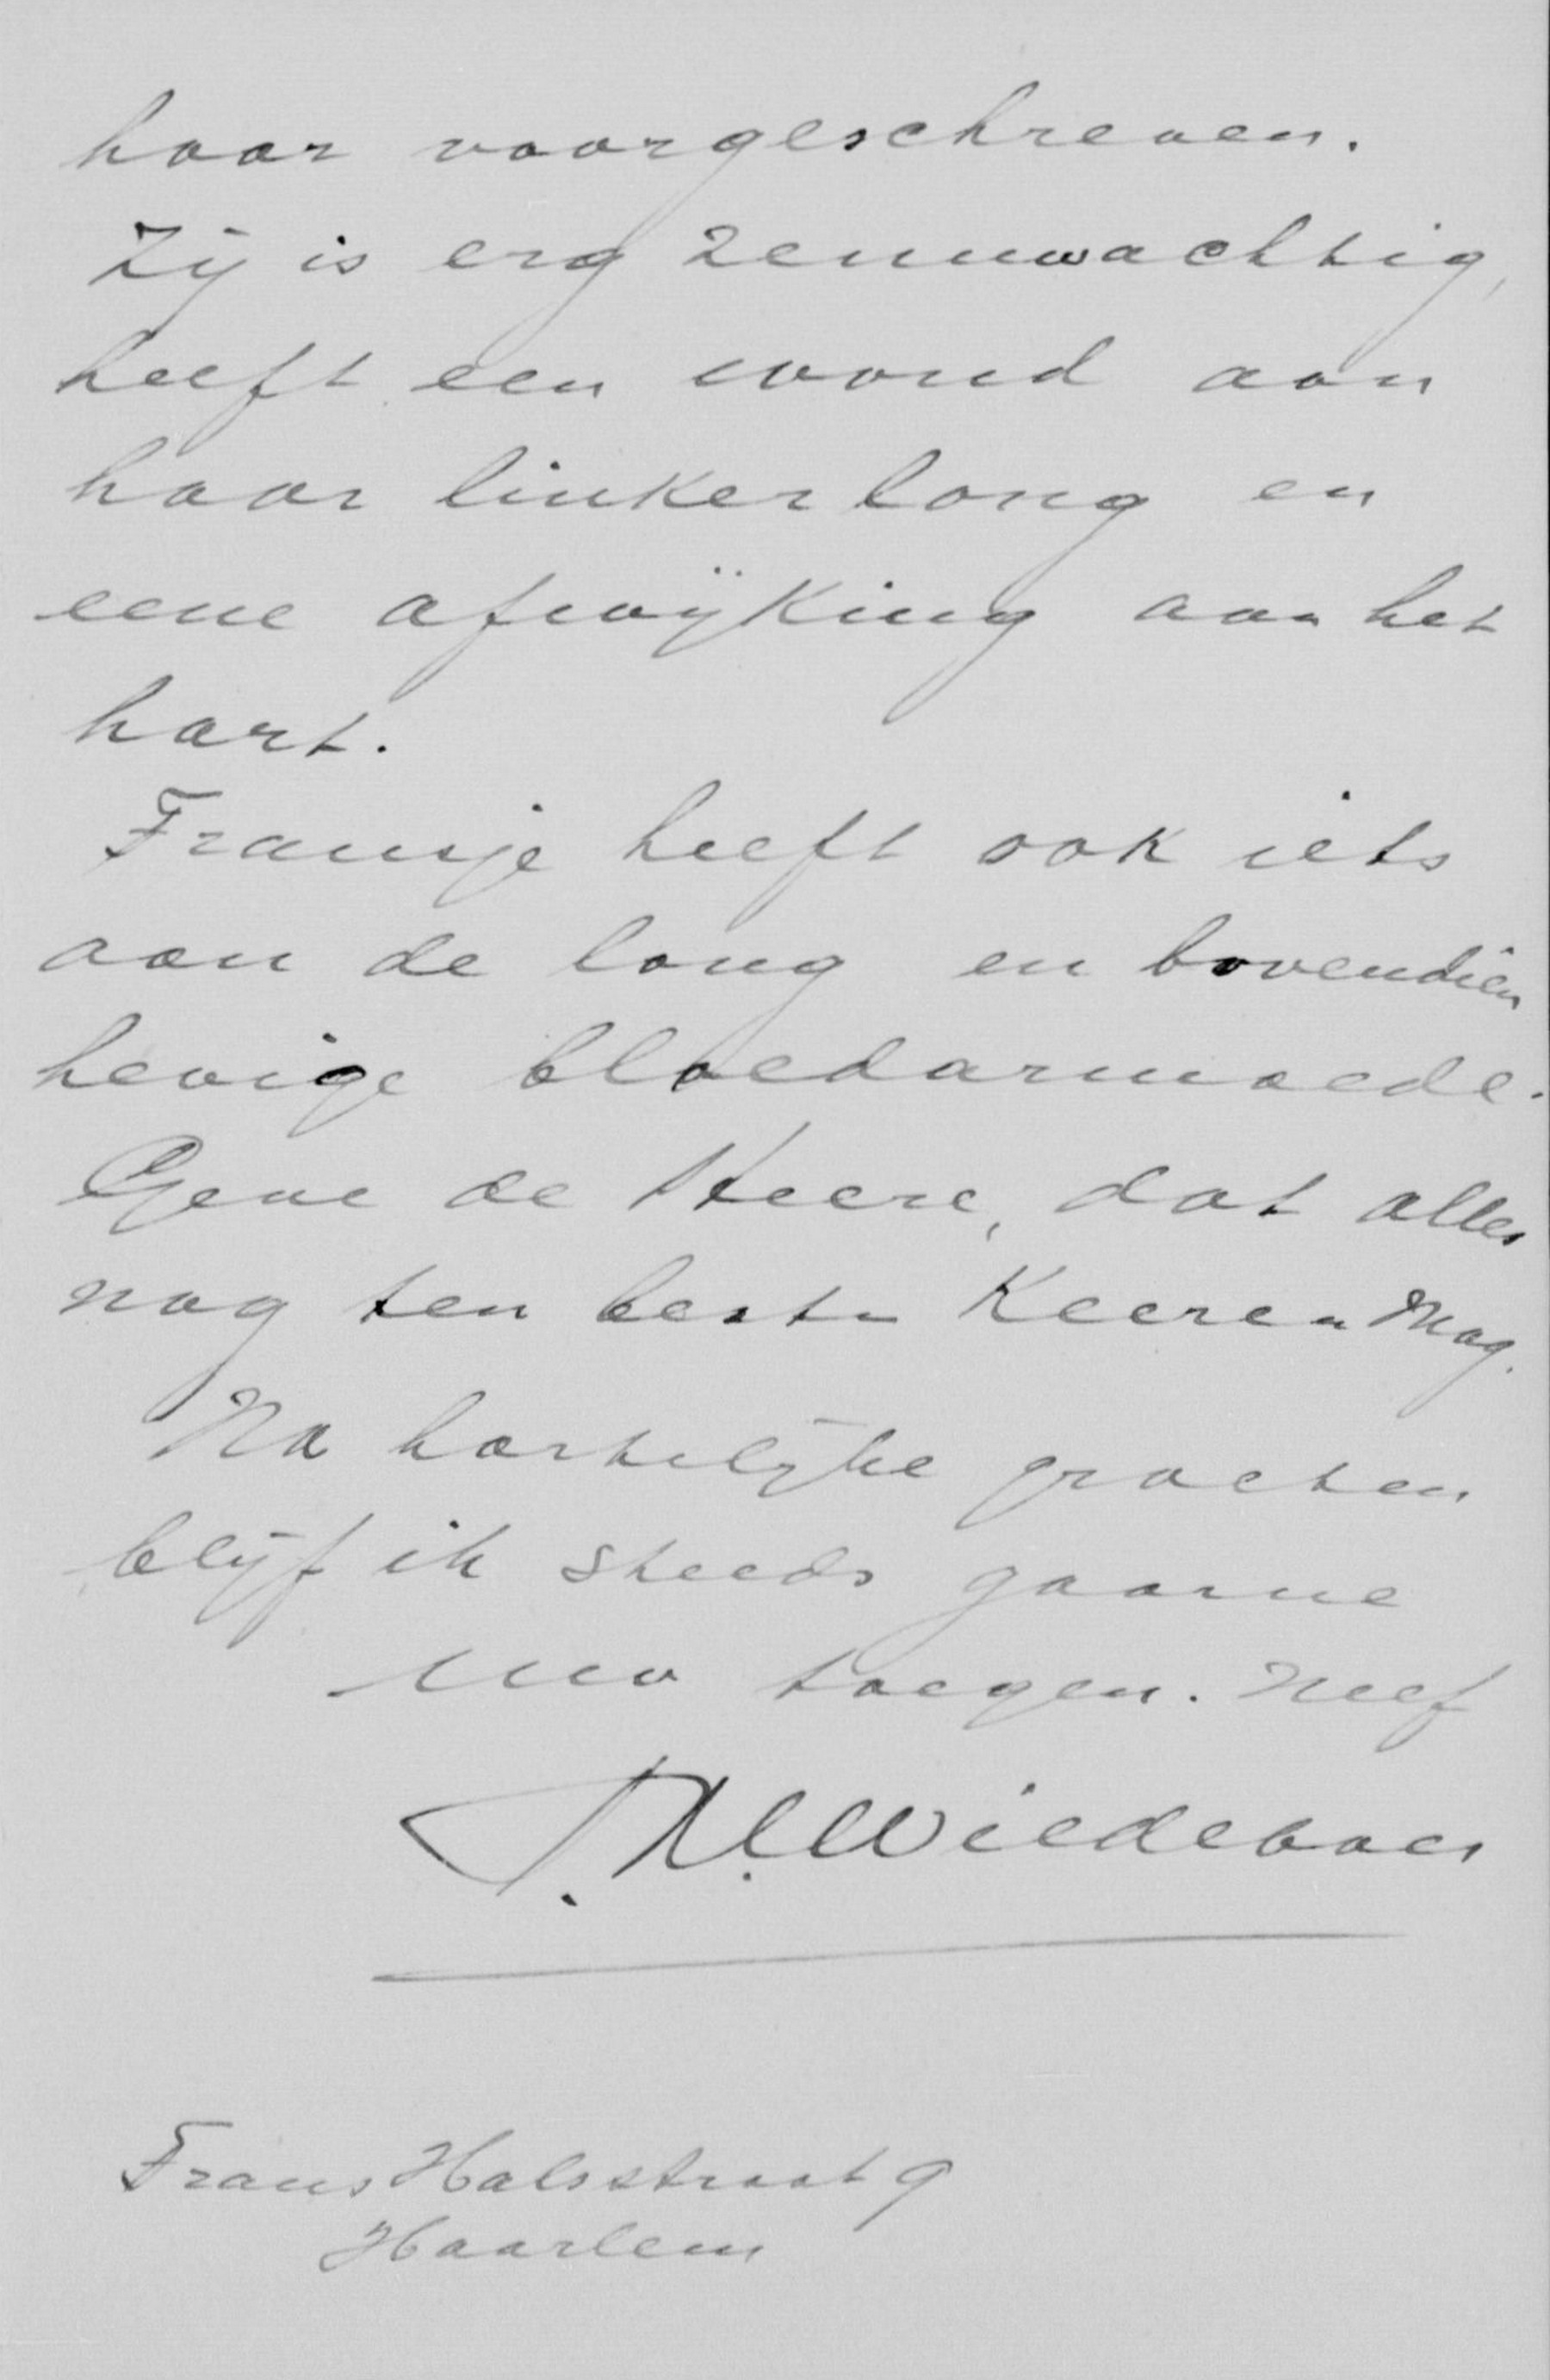 haar voorgeschreven.
Zij is erg zenuwachtig,
heeft een wond aan
haar linker long en
eene afwijking aan het
hart.
Fransje heeft ook iets
aan de long en bovendien
hevige bloedarmoede.
Geve de Heere, dat alles
nog ten beste keeren mag.
Na hartelijke groeten
blijf ik steeds gaarne
Uw toegen. Neef
Wiedeboer
Frans Halsstraat 9
Haarlem